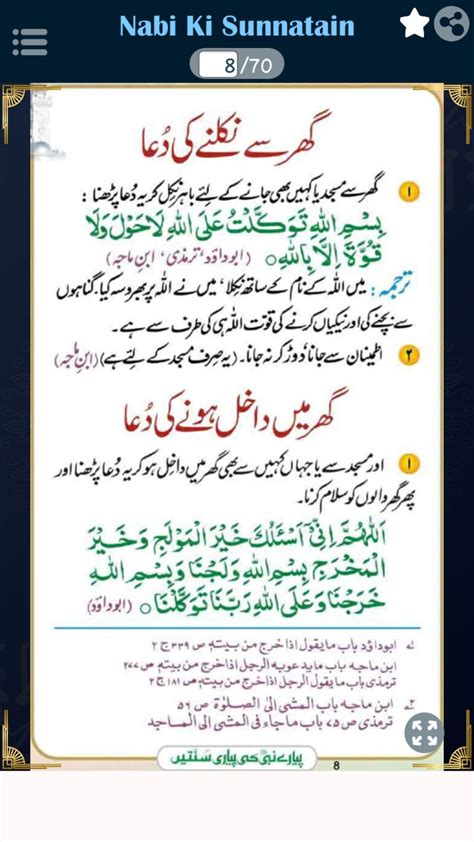 Nabi Ki Sunnatain
8 /70
گھر سے نکلنے کی دُعا
۱ گھر سے مسجد یا کہیں بھی جانے کے لئے باہر نکل کر یہ دُعا پڑھنا :
بِسْمِ اللهِ تَوَكَّلْتُ عَلَى اللهِ لَا حَوْلَ وَلَا
قُوَّةَ اِلَّا بِاللهِ (ابوداؤد، ترمذی، ابن ماجہ)
ترجمہ : میں اللہ کے نام کے ساتھ نکلا، میں نے اللہ پر بھروسہ کیا۔ گناہوں
سے بچنے کی اور نیکیاں کرنے کی قوت اللہ ہی کی طرف سے ہے۔
۲ اطمینان سے جانا، دوڑ کر نہ جانا۔ (یہ صرف مسجد کے لئے ہے) (ابن ماجہ)
گھر میں داخل ہونے کی دُعا
۱ اور مسجد سے یا جہاں کہیں سے بھی گھر میں داخل ہو کر یہ دُعا پڑھنا اور
پھر گھر والوں کو سلام کرنا۔
اَللّٰهُمَّ اِنِّيْ اَسْئَلُكَ خَيْرَ الْمَوْلَجِ وَخَيْرَ
الْمَخْرَجِ بِسْمِ اللهِ وَلَجْنَا وَبِسْمِ اللهِ
خَرَجْنَا وَعَلَى اللهِ رَبِّنَا تَوَكَّلْنَا (ابوداؤد)
۱ ابوداؤد باب ما یقول اذا خرج من بیته ص ۳۳۹ ج ۲
ابن ماجه باب ما يدعو به الرجل اذا خرج من بيته ص ۲۷۷
ترمذی باب ما یقول الرجل اذا خرج من بیته ص ۱۸۱ ج ۲
۲ ابن ماجه باب المشی الی الصلوٰة ص ۵۶
ترمذی ص ۷۵ باب ماجاء فی المشی الی المساجد
پیارے نبی کی پیاری سنتیں
8